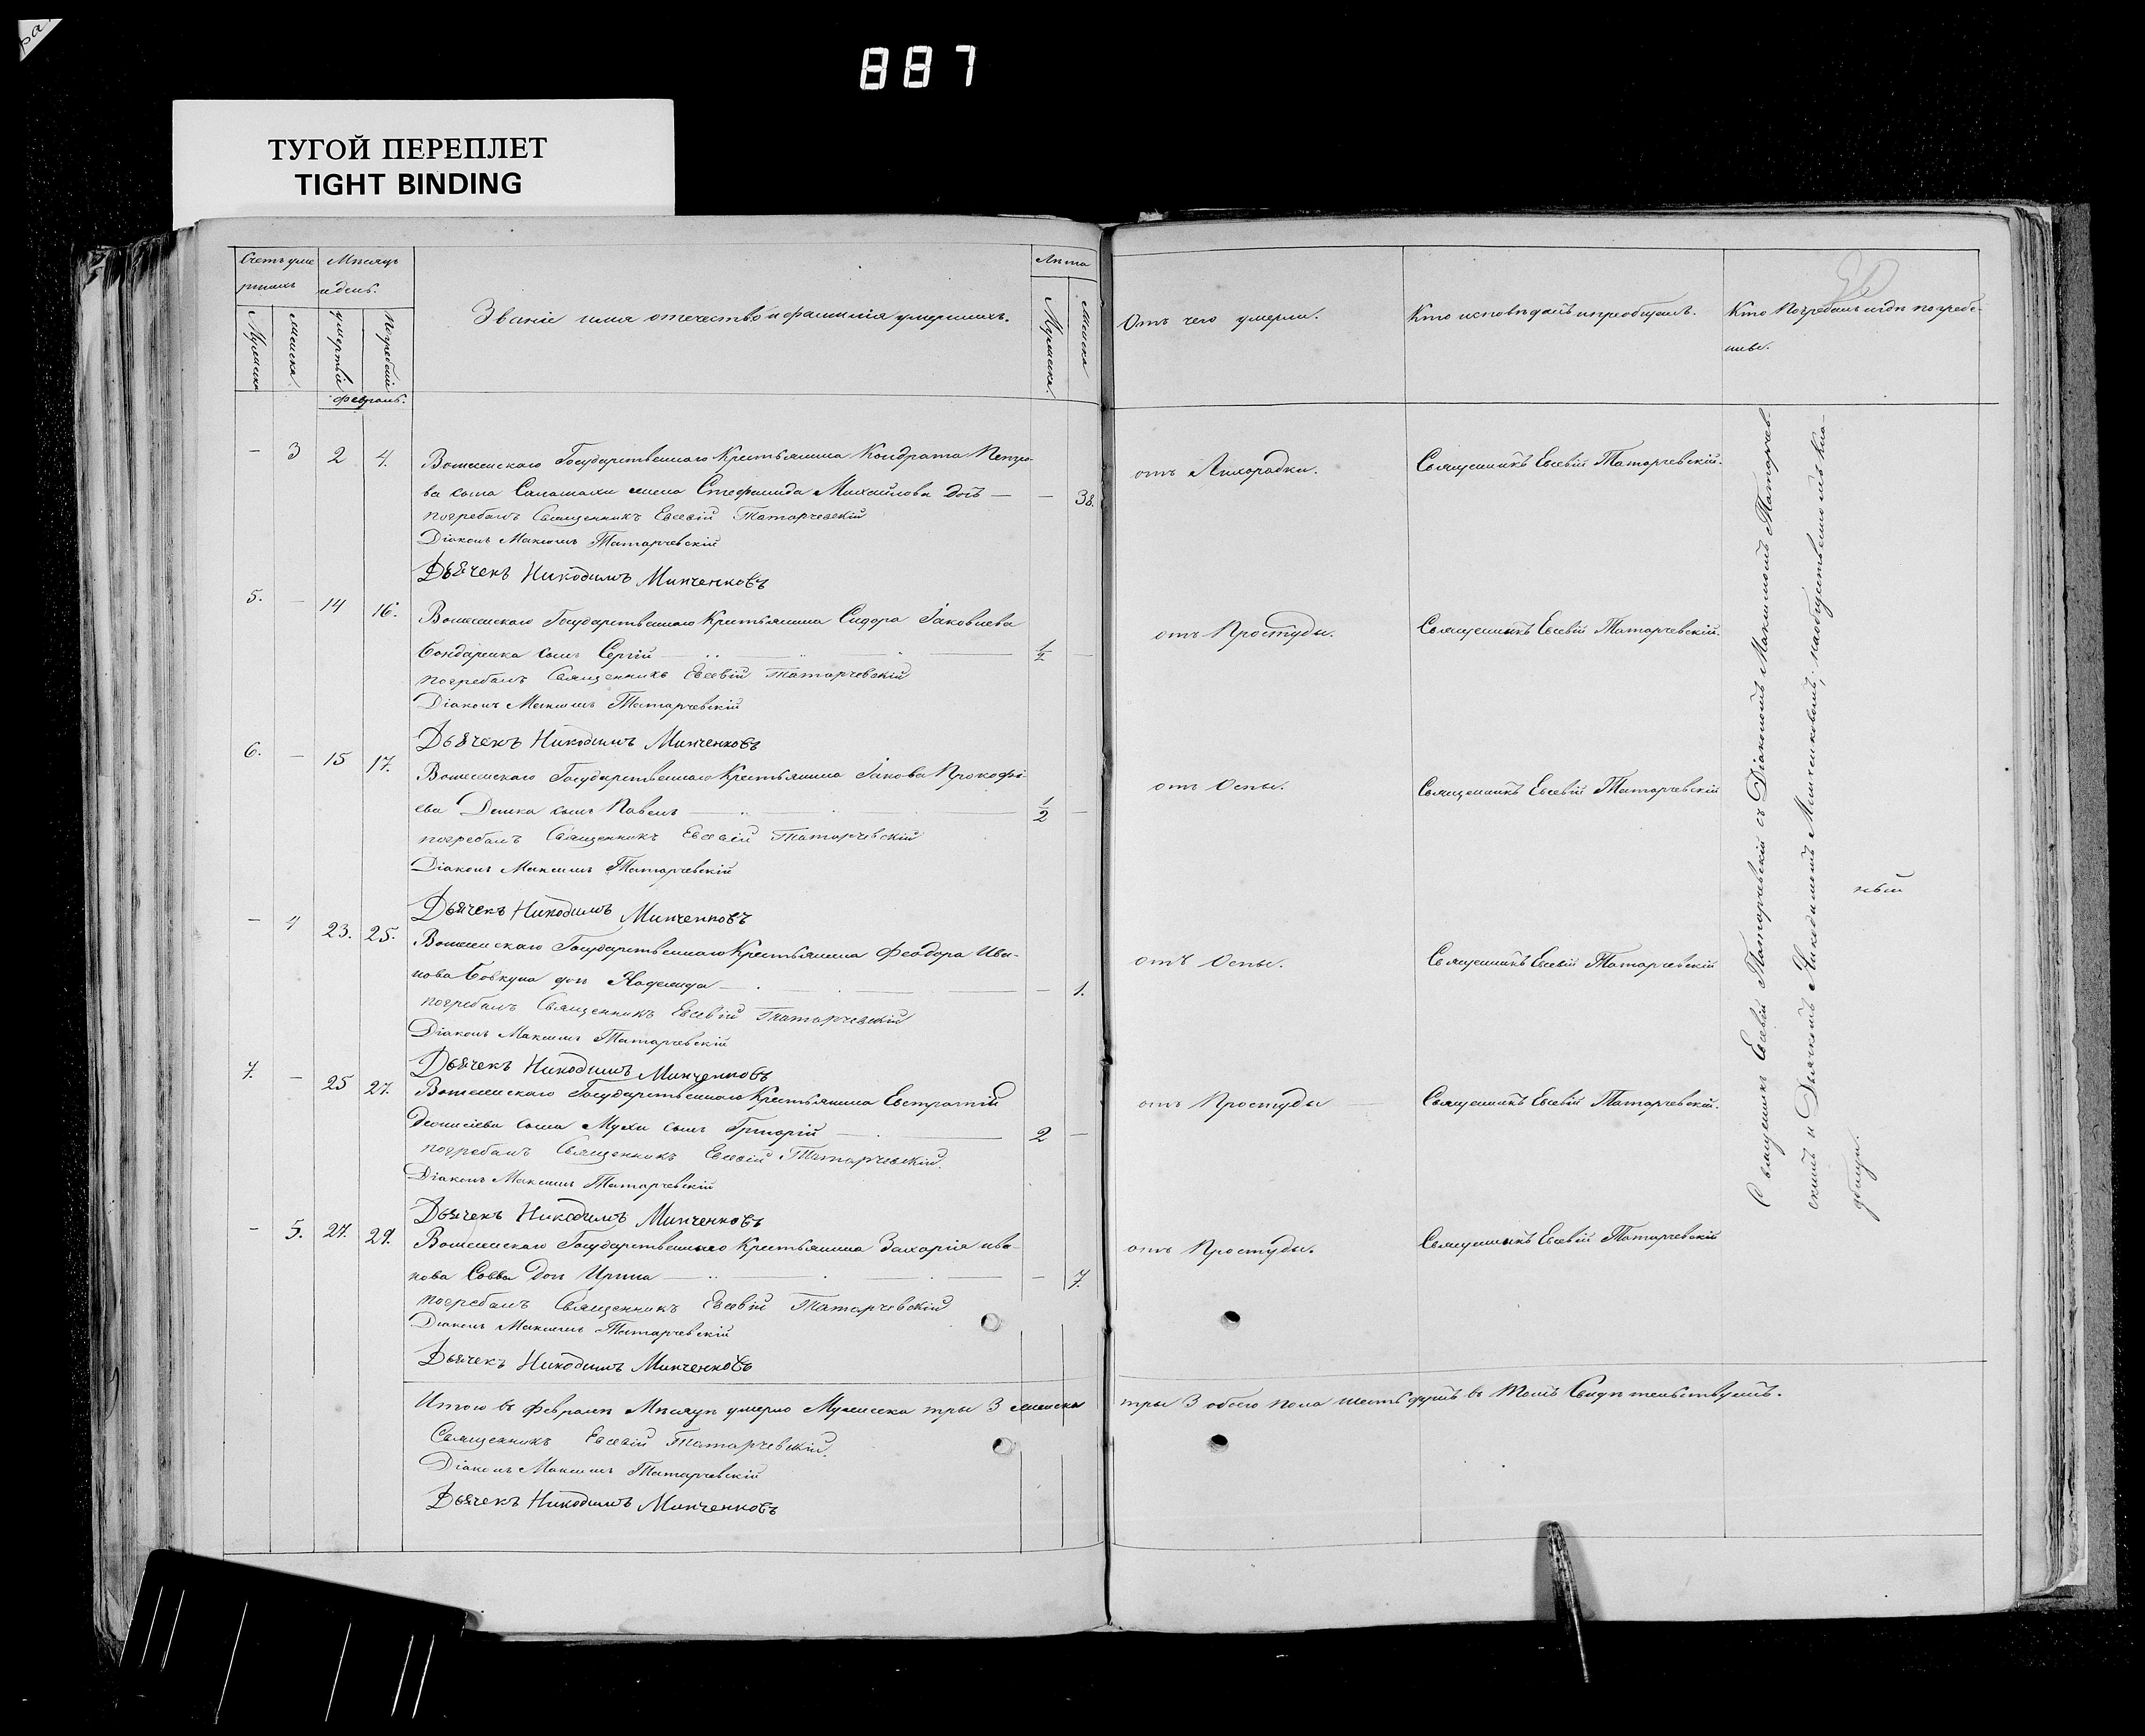 ра
887
ТУГОЙ ПЕРЕПЛЕТ
TIGHT BINDING
Счетъ уме Мѣсяцъ Лѣта
ршихъ и день.
Мужеска женска. умертвія Погребенія Званіе имя отечество и фамилія умершихъ. Мужеска. Женска Отъ чего умерли. Кто исповѣдалъ и преобщалъ. Кто Погребалъ и гдѣ погребе-
ны.
Февраль.
- 3 2 4. Государственнаго Крестьянина Кондрата Петро- отъ Лихорадки. Священникъ Евсевій Татарчевскій.
ва жена Стефанида Михайлова дочь — - 38.
погребалъ Священникъ Евсевій Татарчевскій
Діаконъ Максимъ Татарчевскій
Дьячекъ Никодимъ Минченковъ
5. - 14 16. Государственнаго Крестьянина Сидора Іаковлева отъ Простуды. Священникъ Евсевій Татарчевскій.
Бондаренка сынъ Сергій 1/2 -
погребалъ Священникъ Евсевій Татарчевскій
Діаконъ Максимъ Татарчевскій
Дьячекъ Никодимъ Минченковъ
6. - 15 17. Государственнаго Крестьянина Іакова Прокофі- отъ Оспы. Священникъ Евсевій Татарчевскій
ева сынъ Павелъ 1/2 -
погребалъ Священникъ Евсевій Татарчевскій
Діаконъ Максимъ Татарчевскій
Дьячекъ Никодимъ Минченковъ
- 4 23. 25. Государственнаго Крестьянина Феодора Ива- отъ Оспы. Священникъ Евсевій Татарчевскій
нова Бовкуна дочь Надежда - 1.
погребалъ Священникъ Евсевій Татарчевскій
Діаконъ Максимъ Татарчевскій
Дьячекъ Никодимъ Минченковъ
7. - 25 27. Государственнаго Крестьянина Евстратій отъ Простуды Священникъ Евсевій Татарчевскій.
Діонисіева Мухи сынъ Григорій 2 -
погребалъ Священникъ Евсевій Татарчевскій.
Діаконъ Максимъ Татарчевскій
Дьячекъ Никодимъ Минченковъ
- 5. 27. 29. Государственнаго Крестьянина Захарія Ива- отъ Простуды. Священникъ Евсевій Татарчевскій
нова Савва дочь Ирина - 7.
погребалъ Священникъ Евсевій Татарчевскій
Діаконъ Максимъ Татарчевскій
Дьячекъ Никодимъ Минченковъ
Священникъ Евсевій Татарчевскій съ Діакономъ Максимомъ Татарчев
скимъ и Дьячкомъ Никодимомъ Минченковымъ, на общественномъ кла-
дбищи.
Итого въ Февралѣ Мѣсяцѣ умерло Мужеска три 3 женска три 3 обоего пола шесть душъ въ томъ Свидѣтельствуемъ.
Священникъ Евсевій Татарчевскій.
Діаконъ Максимъ Татарчевскій
Дьячекъ Никодимъ Минченковъ